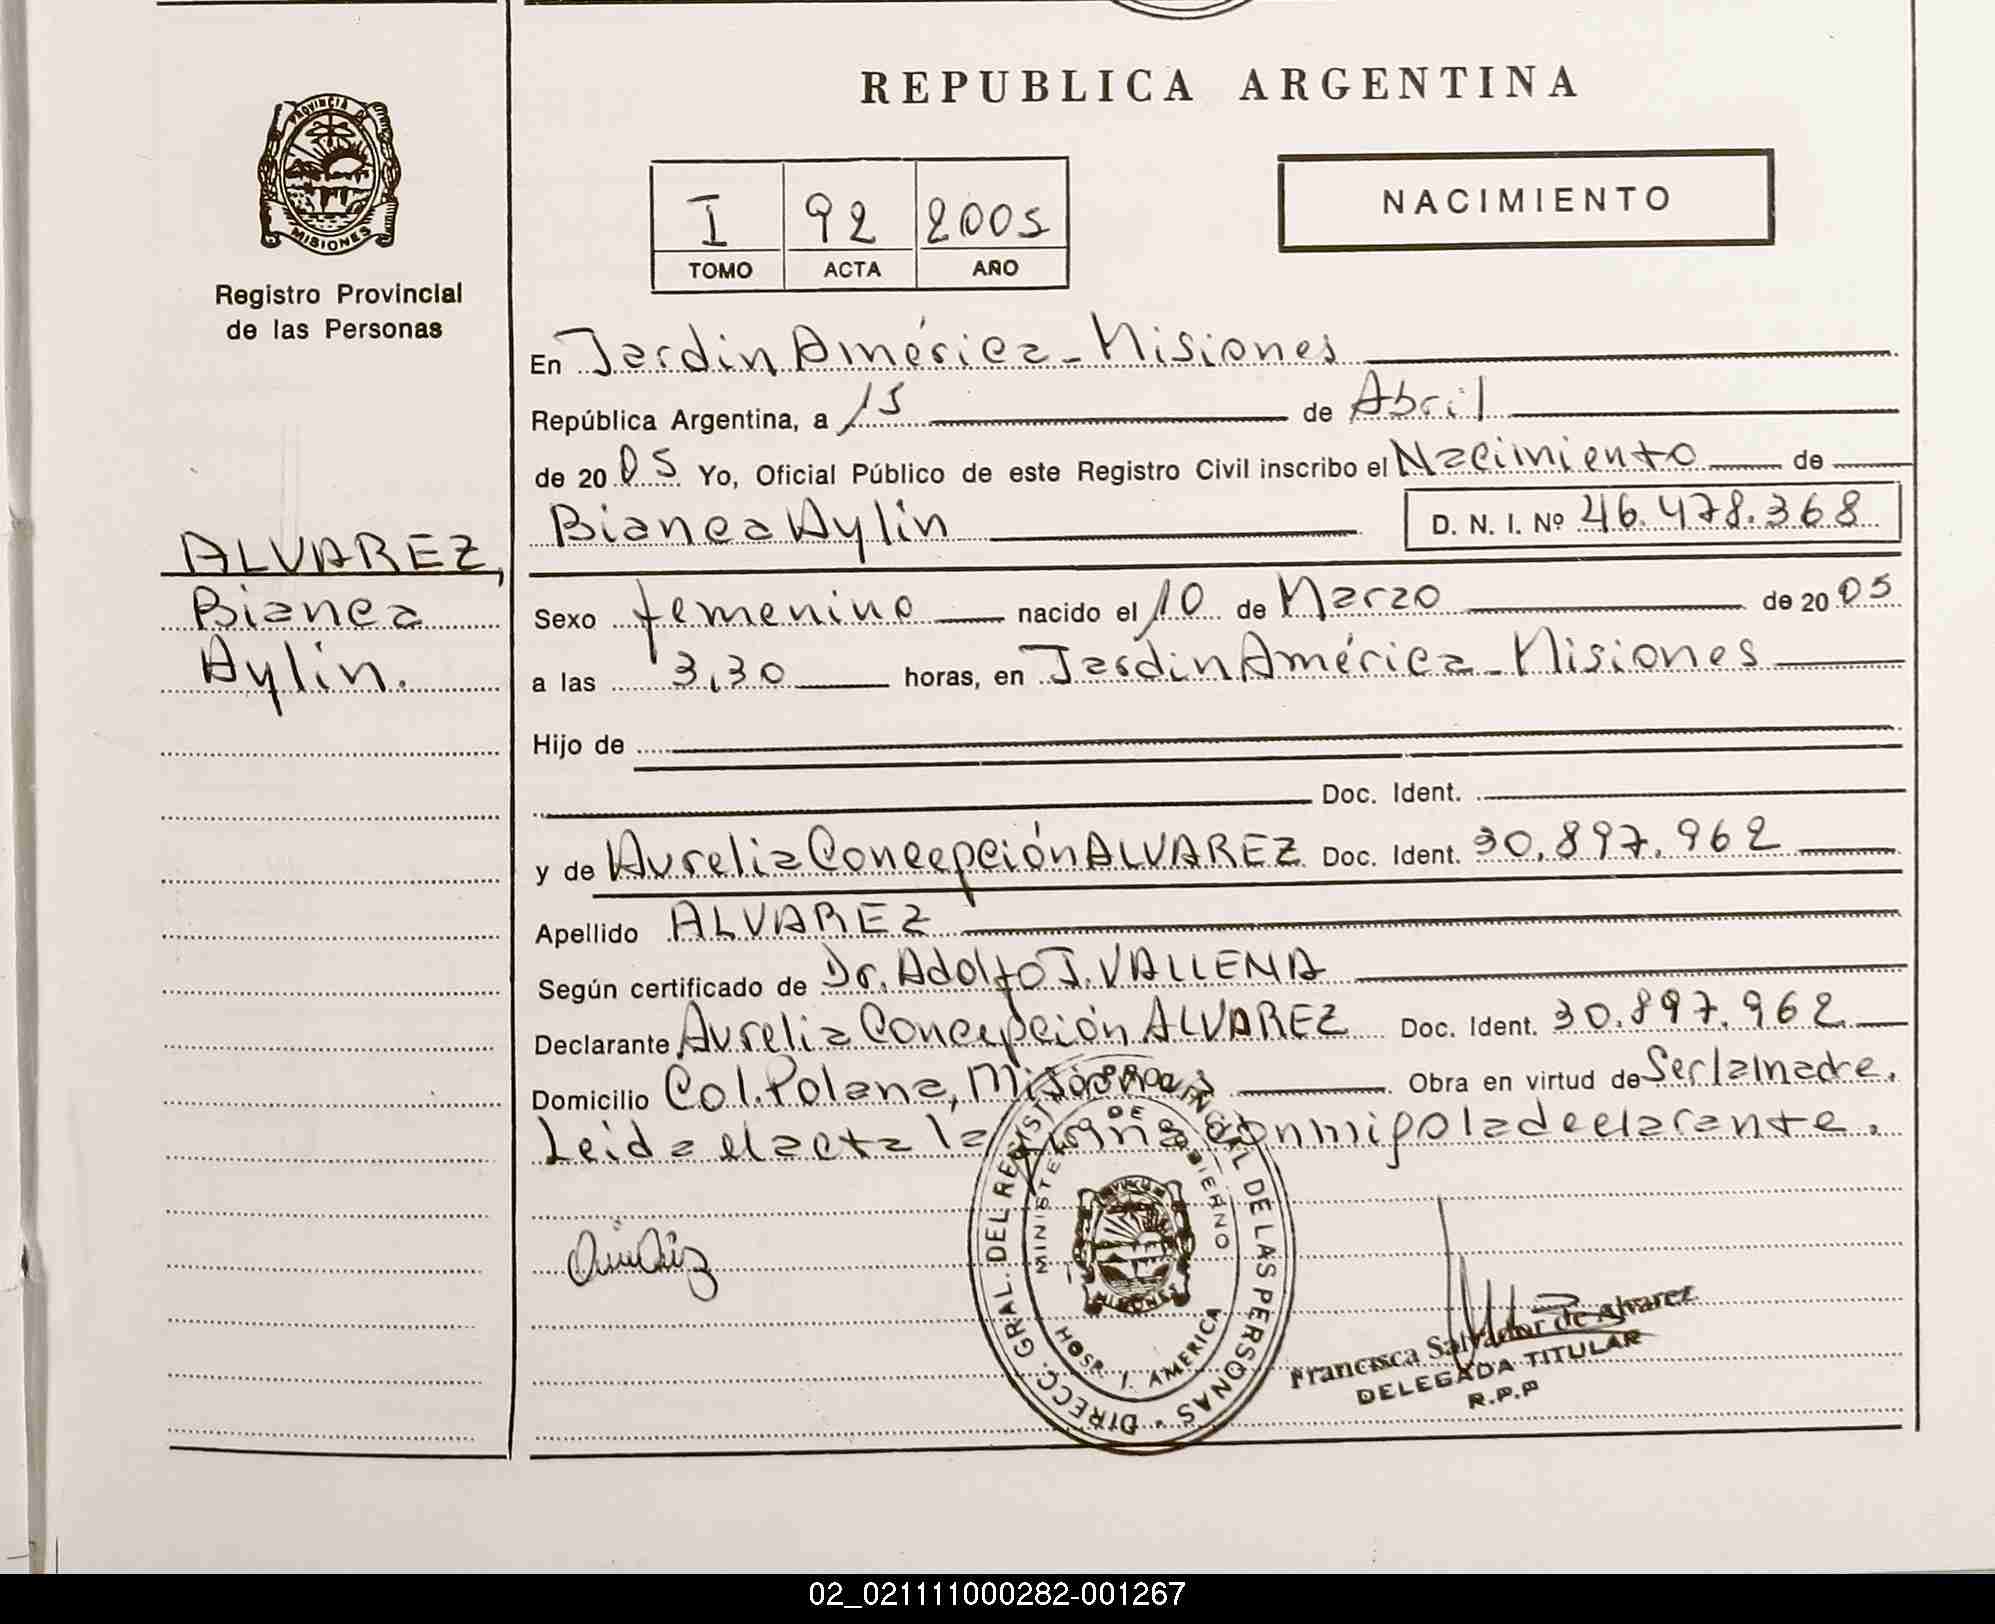 REPUBLICA ARGENTINA
PROVINCIA DE
MISIONES
Registro Provincial
de las Personas
I 92 2005
TOMO ACTA AÑO
NACIMIENTO
En Jardin América - Misiones
República Argentina, a 15 de Abril
de 2005 Yo, Oficial Público de este Registro Civil inscribo el Nacimiento de
Bianca Aylin D. N. I. Nº 46.478.368
ALVAREZ,
Bianca
Aylin.
Sexo femenino nacido el 10 de Marzo de 2005
a las 3,30 horas, en Jardin América - Misiones
Hijo de
Doc. Ident.
y de Aurelia Concepción ALVAREZ Doc. Ident. 30.897.962
Apellido ALVAREZ
Según certificado de Dr. Adolfo J. VALLENA
Declarante Aurelia Concepción ALVAREZ Doc. Ident. 30.897.962
Domicilio Col. Polana, Misiones Obra en virtud de Ser la madre.
Leida el acta la firma conmigo la declarante.
DIRECC. GRAL. DEL REGISTRO PROVINCIAL DE LAS PERSONAS
MINISTERIO DE GOBIERNO
MISIONES
HOSP. J. AMERICA
Francisca Salvador de Alvarez
DELEGADA TITULAR
R.P.P
02_021111000282-001267